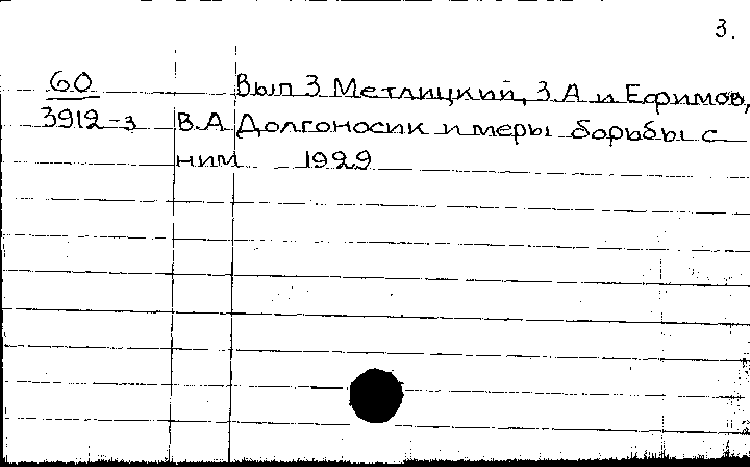 3.
60 Вып 3 Метлицкий, З.А и Ефимов,
3912-3 В.А Долгоносик и меры борьбы с
ним 1929